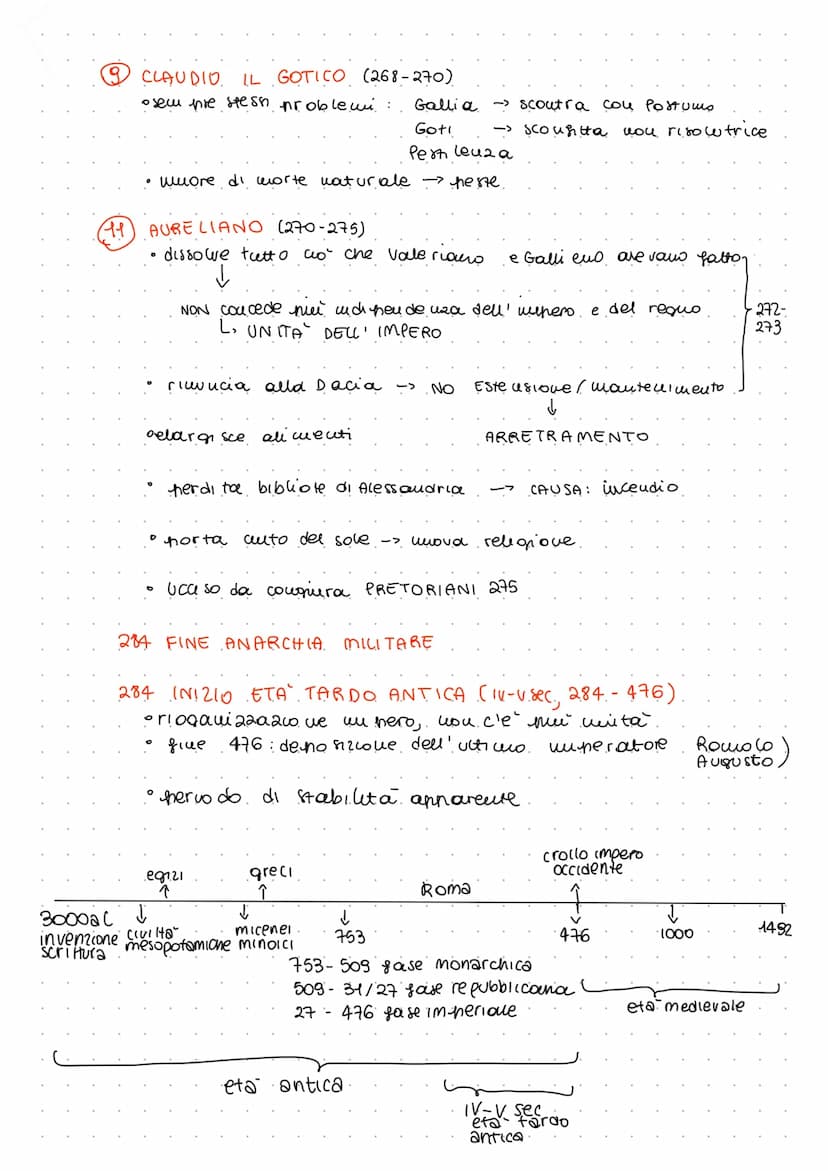 9 CLAUDIO IL GOTICO (268-270)
• sempre stessi problemi: Gallia → scontra con Postumo
Goti → sconfitta non risolutrice
Pestilenza
• muore di morte naturale → peste
11 AURELIANO (270-275)
• dissolve tutto ciò che Valeriano e Gallieno avevano fatto
NON concede più indipendenza dell'impero e del regno
272-
273
↳ UNITÀ DELL'IMPERO
• rinuncia alla Dacia → NO Estensione/mantenimento
• elargisce alimenti
ARRETRAMENTO
• perdita bibliote di Alessandria → CAUSA: incendio
• porta culto del sole → nuova religione
• ucciso da congiura PRETORIANI 275
284 FINE ANARCHIA MILITARE
284 INIZIO ETÀ TARDO ANTICA (IV-V sec, 284-476)
• rioganizzazione impero, non c'è più unità
• fine 476: deposizione dell'ultimo imperatore Romolo
Augusto)
• periodo di stabilità apparente
egizi
greci
Roma
crollo impero
occidente
3000aC
invenzione
scrittura
civiltà
mesopotamiche
micenei
minoici
753
476
1000
1492
753-509 fase monarchica
509-31/27 fase repubblicana
27-476 fase imperiale
età medievale
età antica
IV-V sec
età tardo
antica